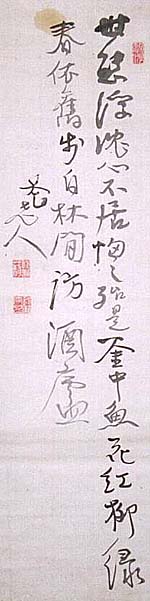 世路浮沈心不居悔之殆是釜中魚花紅柳緑
春依舊步自林間訪酒廬
老人